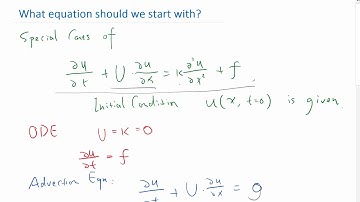 What equation should we start with?
Special Cases of
∂u/∂t + U · ∂u/∂x = κ ∂²u/∂x² + f
Initial Condition u(x, t=0) is given.
ODE U = κ = 0
∂u/∂t = f
Advection Eqn: ∂u/∂t + U · ∂u/∂x = g